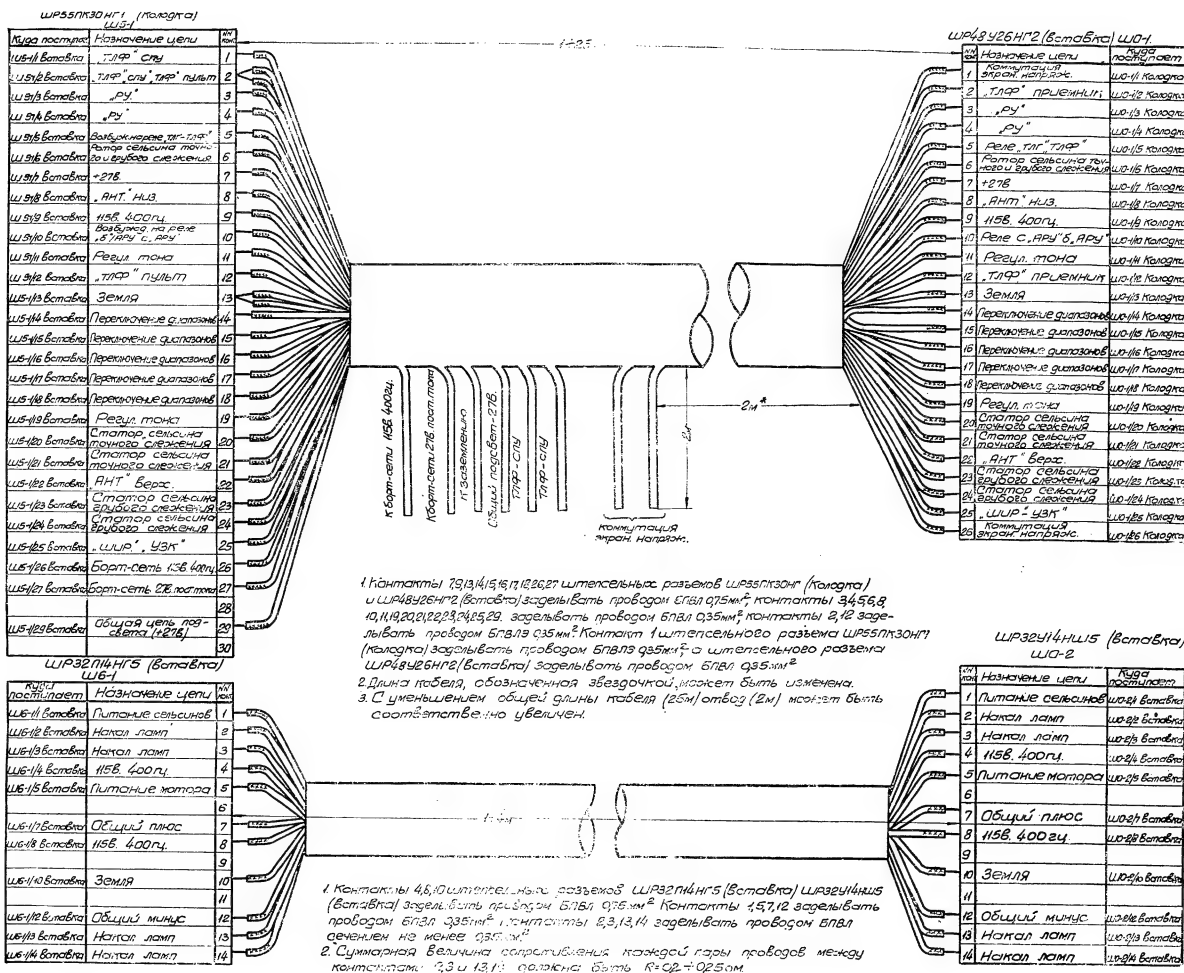 ШР55ПК30НГ1 (Колодка)
Ш5-1
Назначение цепи
Ш5-1/1 Вставка „ТЛФ" СПУ 1
„ТЛФ" СПУ, ТЛФ" пульт 2
„РУ" 3
„РУ" 4
5
Ротор сельсина точного и грубого слежения 6
+27В 7
„АНТ." НИЗ. 8
115В. 400гц. 9
Возбужд. на реле „Б"/АРУ" С„АРУ" 10
Регул. тона 11
„ТЛФ" пульт 12
Ш5-1/13 Вставка Земля 13
Ш5-1/14 Вставка Переключение диапазонов 14
Ш5-1/15 Вставка Переключение диапазонов 15
Ш5-1/16 Вставка Переключение диапазонов 16
Ш5-1/17 Вставка Переключение диапазонов 17
Ш5-1/18 Вставка Переключение диапазонов 18
Ш5-1/19 Вставка Регул. тона 19
Ш5-1/20 Вставка Статор сельсина точного слежения 20
Ш5-1/21 Вставка Статор сельсина точного слежения 21
Ш5-1/22 Вставка „АНТ" Верх. 22
Ш5-1/23 Вставка Статор сельсина грубого слежения 23
Ш5-1/24 Вставка Статор сельсина грубого слежения 24
Ш5-1/25 Вставка „ШИР.", УЗК" 25
Ш5-1/26 Вставка Борт-сеть 115В 400гц. 26
Ш5-1/27 Вставка Борт-сеть 27В пост.тока 27
28
Ш5-1/29 Вставка Общая цепь подсвета (+27В) 29
30
ШР48У26НГ2 (Вставка) Ш0-1.
Назначение цепи Куда поступает
1 Коммутация экран. напряж. Ш0-1/1 Колодка
2 „ТЛФ" приемник Ш0-1/2 Колодка
3 „РУ" Ш0-1/3 Колодка
4 „РУ" Ш0-1/4 Колодка
5 Реле „ТЛГ" ТЛФ" Ш0-1/5 Колодка
6 Ротор сельсина точного и грубого слежения Ш0-1/6 Колодка
7 +27В Ш0-1/7 Колодка
8 „АНТ." НИЗ. Ш0-1/8 Колодка
9 115В. 400гц. Ш0-1/9 Колодка
10 Реле С„АРУ" Б„АРУ" Ш0-1/10 Колодка
11 Регул. тона Ш0-1/11 Колодка
12 „ТЛФ" приемник Ш0-1/12 Колодка
13 Земля Ш0-1/13 Колодка
14 Переключение диапазонов Ш0-1/14 Колодка
15 Переключение диапазонов Ш0-1/15 Колодка
16 Переключение диапазонов Ш0-1/16 Колодка
17 Переключение диапазонов Ш0-1/17 Колодка
18 Переключение диапазонов Ш0-1/18 Колодка
19 Регул. тона Ш0-1/19 Колодка
20 Статор сельсина точного слежения Ш0-1/20 Колодка
21 Статор сельсина точного слежения Ш0-1/21 Колодка
22 „АНТ" Верх. Ш0-1/22 Колодка
23 Статор сельсина грубого слежения Ш0-1/23 Колодка
24 Статор сельсина грубого слежения Ш0-1/24 Колодка
25 „ШИР." УЗК" Ш0-1/25 Колодка
26 Коммутация экран. напряж. Ш0-1/26 Колодка
2м*
2м
К борт-сети 115В 400гц.
К борт-сети 27В пост. тока
К заземлению
Общий подсвет-27В.
ТЛФ-СПУ
ТЛФ-СПУ
коммутация
экран. напряж.
1. Контакты 7,9,13,14,15,16,17,18,26,27 штепсельных разъемов ШР55ПК30НГ (Колодка)
и ШР48У26НГ2 (Вставка) заделывать проводом БПВЛ 0,75мм², контакты 3,4,5,6,8,
10,11,19,20,21,22,23,24,25,29. заделывать проводом БПВЛ 0,35мм², контакты 2,12 заде-
лывать проводом БПВЛЭ 0,35мм² Контакт 1 штепсельного разъема ШР55ПК30НГ1
(Колодка) заделывать проводом БПВЛЭ 0,35мм², а штепсельного разъема
ШР48У26НГ2 (Вставка) заделывать проводом БПВЛ 0,35мм²
2. Длина кабеля, обозначенная звездочкой, может быть изменена.
3. С уменьшением общей длины кабеля (25м) отвод (2м) может быть
соответственно увеличен.
ШР32П14НГ5 (Вставка)
Ш6-1
Куда поступает Назначение цепи
Ш6-1/1 Вставка Питание сельсинов 1
Ш6-1/2 Вставка Накал ламп 2
Ш6-1/3 Вставка Накал ламп 3
Ш6-1/4 Вставка 115В. 400гц. 4
Ш6-1/5 Вставка Питание мотора 5
6
Ш6-1/7 Вставка Общий плюс 7
Ш6-1/8 Вставка 115В. 400гц. 8
9
Ш6-1/10 Вставка Земля 10
11
Ш6-1/12 Вставка Общий минус 12
Ш6-1/13 Вставка Накал ламп 13
Ш6-1/14 Вставка Накал ламп 14
ШР32У14НШ5 (Вставка)
Ш0-2
Назначение цепи Куда поступает
1 Питание сельсинов Ш0-2/1 Вставка
2 Накал ламп Ш0-2/2 Вставка
3 Накал ламп Ш0-2/3 Вставка
4 115В. 400гц. Ш0-2/4 Вставка
5 Питание мотора Ш0-2/5 Вставка
6
7 Общий плюс Ш0-2/7 Вставка
8 115В. 400гц Ш0-2/8 Вставка
9
10 Земля Ш0-2/10 Вставка
11
12 Общий минус Ш0-2/12 Вставка
13 Накал ламп Ш0-2/13 Вставка
14 Накал ламп Ш0-2/14 Вставка
1. Контакты 4,8,10 штепсельных разъемов ШР32П14НГ5 (Вставка) ШР32У14НШ5
(Вставка) заделывать проводом БПВЛ 0,75мм² Контакты 1,5,7,12 заделывать
проводом БПВЛ 0,35мм² Контакты 2,3,13,14 заделывать проводом БПВЛ
сечением не менее
2. Суммарная величина сопротивления каждой пары проводов между
контактами 2,3 и 13,14 должна быть R=0,2÷0,25ом.